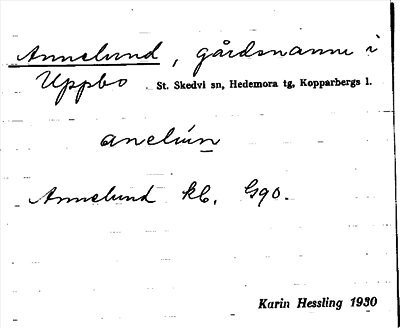 Annelund, gårdsnamn i
Uppbo St. Skedvi sn, Hedemora tg, Kopparbergs l.
anelún
Annelund kb. G90.
Karin Hessling 1930